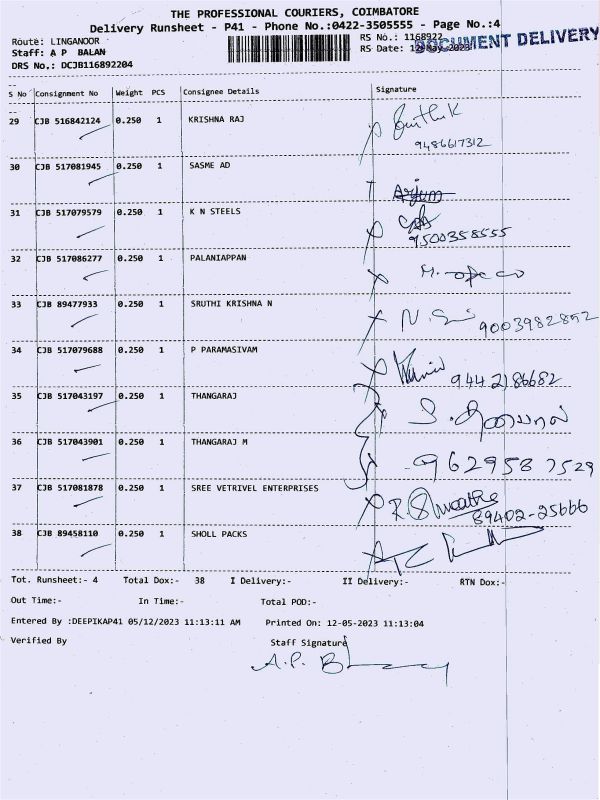 THE PROFESSIONAL COURIERS, COIMBATORE
Delivery Runsheet - P41 - Phone No.:0422-3505555 - Page No.:4
Route: LINGANOOR
RS No.: 1168922
DOCUMENT DELIVERY
Staff: A P BALAN
RS Date: 12-May-2023
DRS No.: DCJB116892204
S No Consignment No Weight PCS Consignee Details Signature
29 CJB 516842124 0.250 1 KRISHNA RAJ
9486617312
30 CJB 517081945 0.250 1 SASME AD
Arjun
31 CJB 517079579 0.250 1 K N STEELS
9500358555
32 CJB 517086277 0.250 1 PALANIAPPAN
33 CJB 89477933 0.250 1 SRUTHI KRISHNA N
9003982852
34 CJB 517079688 0.250 1 P PARAMASIVAM
9442186682
35 CJB 517043197 0.250 1 THANGARAJ
36 CJB 517043901 0.250 1 THANGARAJ M
9629587529
37 CJB 517081878 0.250 1 SREE VETRIVEL ENTERPRISES
89402-25666
38 CJB 89458110 0.250 1 SHOLL PACKS
Tot. Runsheet:- 4 Total Dox:- 38 I Delivery:- II Delivery:- RTN Dox:-
Out Time:- In Time:- Total POD:-
Entered By :DEEPIKAP41 05/12/2023 11:13:11 AM Printed On: 12-05-2023 11:13:04
Verified By Staff Signature
A.P.